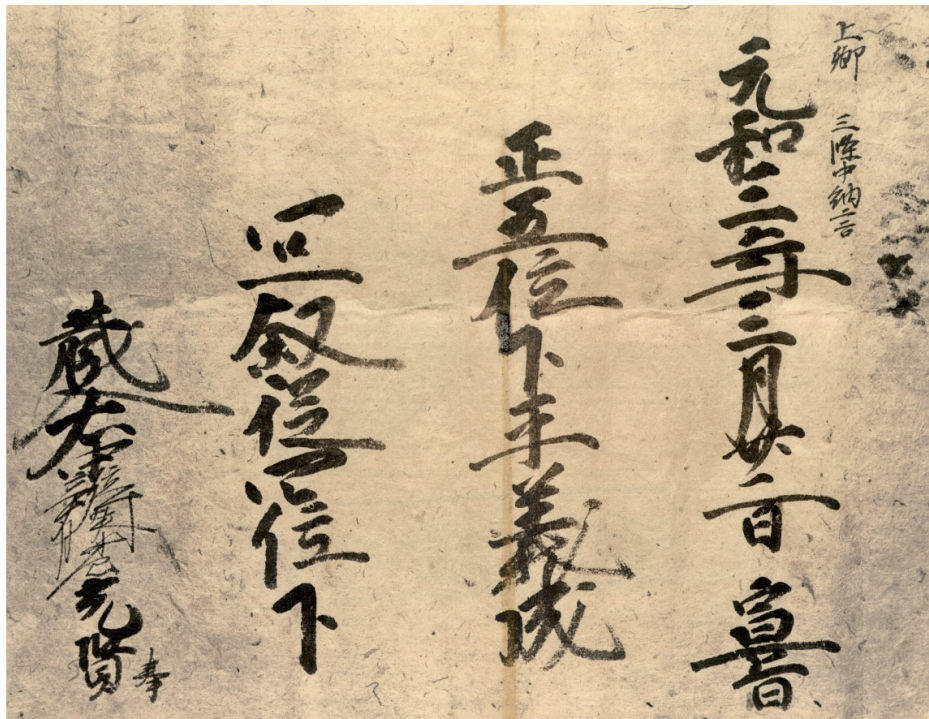 上卿　三條中納言
元和二年三月廿一日　宣旨
正五位下平義成
宜叙従四位下
蔵人光賢奉